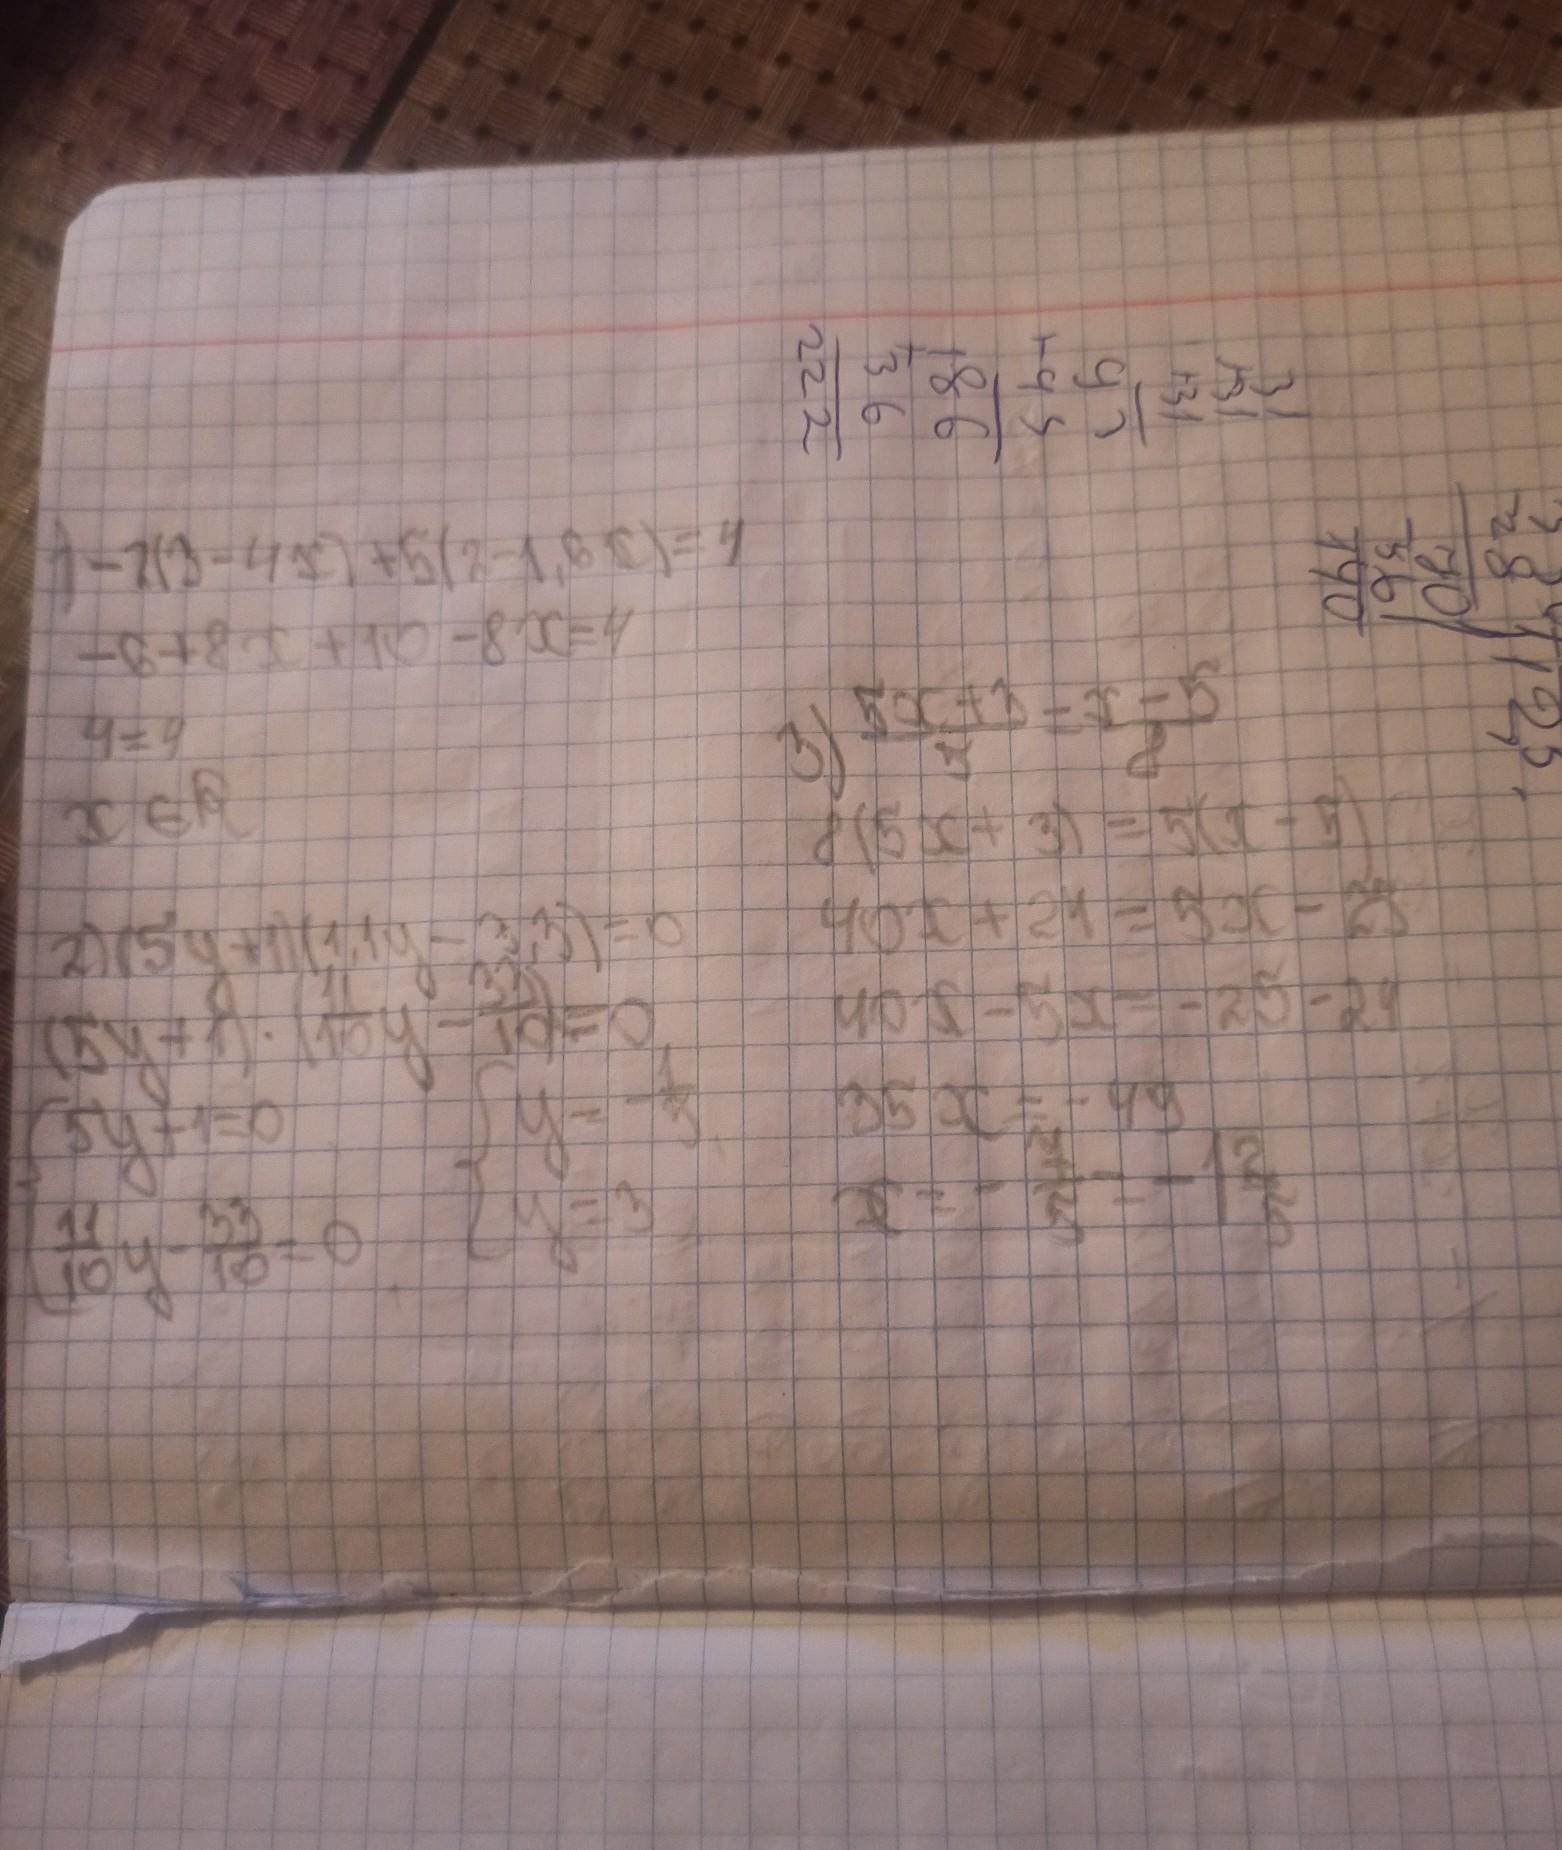 1) -2(3-4x)+5(2-1,6x)=4
-6+8x+10-8x=4
4=4
x∈R
2) (5y+1)(1,1y-3,3)=0
(5y+1)·(11/10y-33/10)=0
{5y+1=0
11/10y-33/10=0
{y=-1/5
y=3
3) 5x+3/5=x-5/8
8(5x+3)=5(x-5)
40x+24=5x-25
40x-5x=-25-24
35x=-49
x=-7/5=-1 2/5
31
+31
+31
93
186
+36
222
56